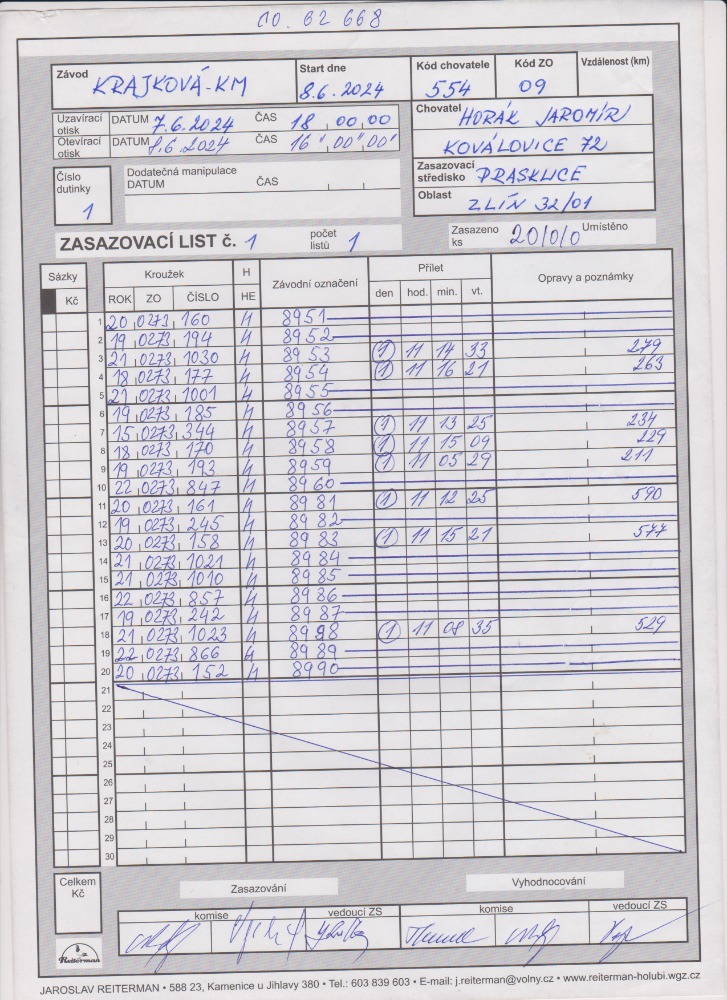 10. 62 668
Závod KRAJKOVÁ-KM Start dne 8.6.2024 Kód chovatele 554 Kód ZO 09 Vzdálenost (km)
Uzavírací otisk DATUM 7.6.2024 ČAS 18 00 00
Otevírací otisk DATUM 8.6.2024 ČAS 16 00 00
Chovatel HORÁK JAROMÍR
KOVÁLOVICE 72
Zasazovací středisko PRASKLICE
Oblast ZLÍN 32/01
Číslo dutinky 1
Dodatečná manipulace
DATUM ČAS
ZASAZOVACÍ LIST č. 1 počet listů 1 Zasazeno ks 20/0/0 Umístěno
Sázky Kroužek H Závodní označení Přílet Opravy a poznámky
Kč ROK ZO ČÍSLO HE den hod. min. vt.
1 20 0273 160 H 8951
2 19 0273 194 H 8952
3 21 0273 1030 H 8953 1 11 14 33 279
4 18 0273 177 H 8954 1 11 16 21 263
5 21 0273 1001 H 8955
6 19 0273 185 H 8956
7 15 0273 344 H 8957 1 11 13 25 234
8 18 0273 170 H 8958 1 11 15 09 229
9 19 0273 193 H 8959 1 11 05 29 211
10 22 0273 847 H 8960
11 20 0273 161 H 8981 1 11 12 25 590
12 19 0273 245 H 8982
13 20 0273 158 H 8983 1 11 15 21 577
14 21 0273 1021 H 8984
15 21 0273 1010 H 8985
16 22 0273 857 H 8986
17 19 0273 242 H 8987
18 21 0273 1023 H 8998 1 11 08 35 529
19 22 0273 866 H 8989
20 20 0273 152 H 8990
21
22
23
24
25
26
27
28
29
30
Celkem Kč
Zasazování Vyhodnocování
komise vedoucí ZS komise vedoucí ZS
Reiterman
JAROSLAV REITERMAN • 588 23, Kamenice u Jihlavy 380 • Tel.: 603 839 603 • E-mail: j.reiterman@volny.cz • www.reiterman-holubi.wgz.cz